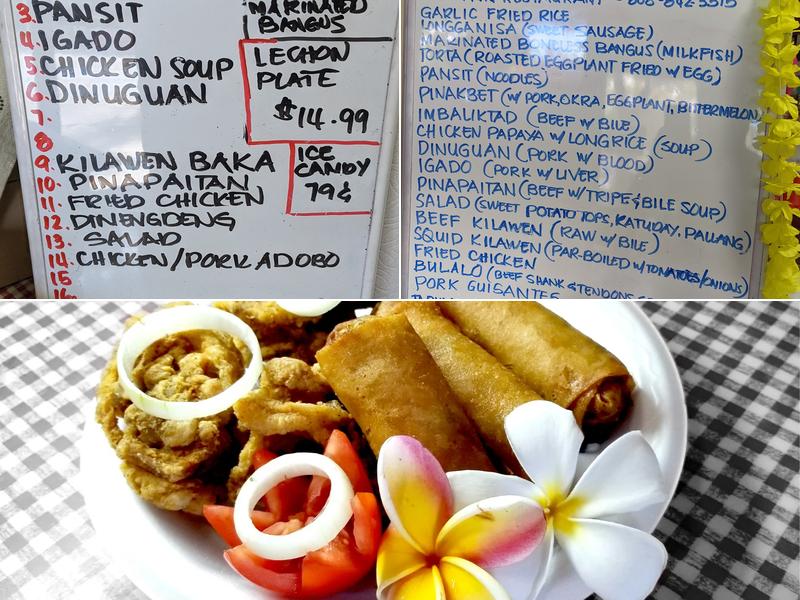 3. PANSIT
4. IGADO
5. CHICKEN SOUP
6. DINUGUAN
7.
8
9. KILAWEN BAKA
10. PINAPAITAN
11. FRIED CHICKEN
12. DINENGDENG
13. SALAD
14. CHICKEN/PORK ADOBO
15
16.
MARINATED
BANGUS
LECHON
PLATE
$14.99
ICE
CANDY
79¢
RESTAURANT
GARLIC FRIED RICE
LONGGANISA (SWEET SAUSAGE)
MARINATED BONELESS BANGUS (MILKFISH)
TORTA (ROASTED EGGPLANT FRIED W/ EGG)
PANSIT (NOODLES)
PINAKBET (W/ PORK, OKRA, EGGPLANT, BITTERMELON)
IMBALIKTAD (BEEF W/ BILE)
CHICKEN PAPAYA W/ LONG RICE (SOUP)
DINUGUAN (PORK W/ BLOOD)
IGADO (PORK W/ LIVER)
PINAPAITAN (BEEF W/ TRIPE & BILE SOUP)
SALAD (SWEET POTATO TOPS, KATUDAY, PALLANG)
BEEF KILAWEN (RAW W/ BILE)
SQUID KILAWEN (PAR-BOILED W/ TOMATOES/ONIONS)
FRIED CHICKEN
BULALO (BEEF SHANK & TENDONS
PORK GUISANTES